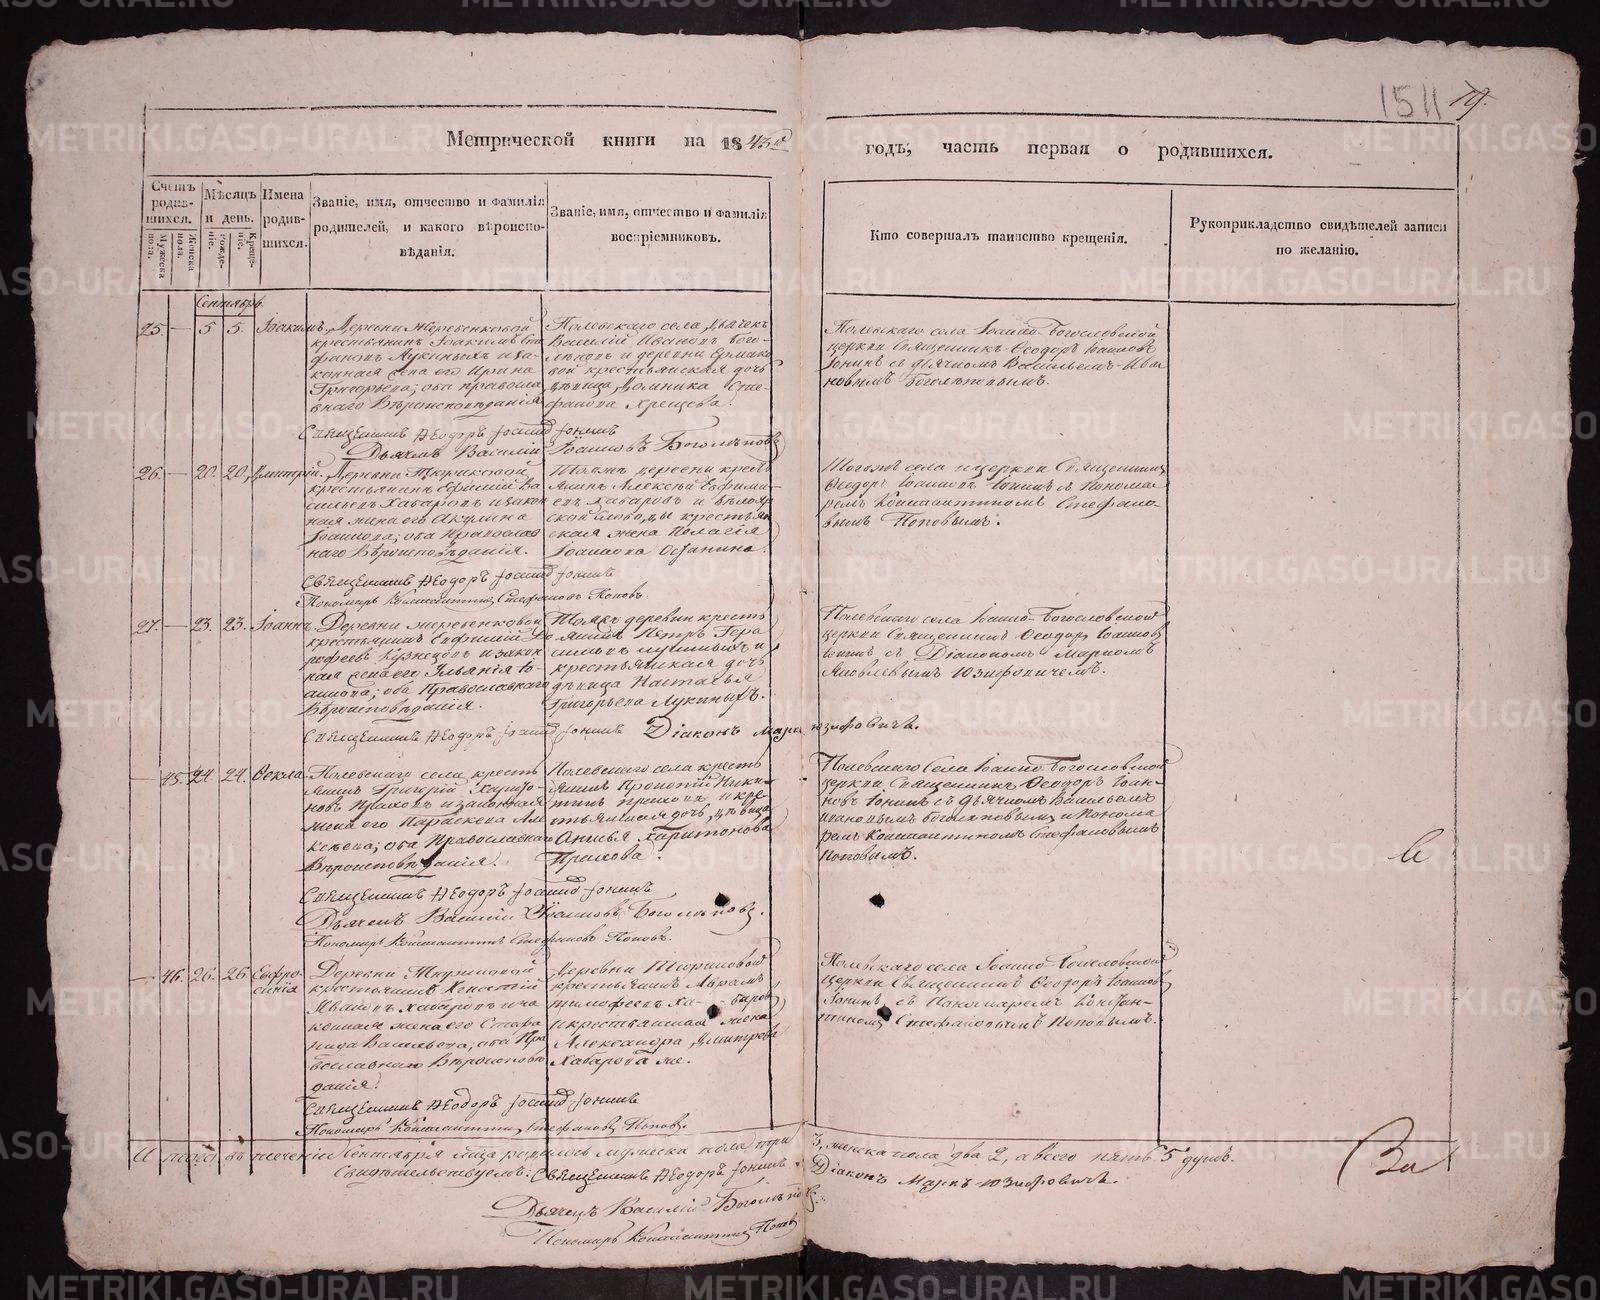 1511 19.
Метрической книги на 1843й годъ, часть первая о родившихся.
Счетъ родившихся.
Мужеска пола.
Женска пола.
Мѣсяцъ и день.
Рожденіе.
Крещеніе.
Имена родившихся.
Званіе, имя, отчество и фамилія
родителей, и какого вѣроиспо-
вѣданія.
Званіе, имя, отчество и фамилія
воспріемниковъ.
Кто совершалъ таинство крещенія.
Рукоприкладство свидѣтелей записи
по желанію.
Сентябрь.
25. — 5 5. Іоакимъ.
Деревни
крестьянинъ Іоакимъ Сте
фановъ Лукиныхъ и за-
конная жена его Ирина
Григорьева; оба православ
наго Вѣроисповѣданія
Полевскаго села, Дьячекъ
Василій Ивановъ Бого-
лѣповъ и деревни Ермако
вой крестьянская дочь
дѣвица, Домника Сте-
фанова Хрещева.
Полевскаго села Іоанно-Богословской
церкви Священникъ Ѳеодоръ Іоанновъ
Іонинъ съ дьячкомъ Васильемъ Ива
новымъ Боголѣповымъ.
Священникъ Ѳеодоръ Іоанновъ Іонинъ
Дьячекъ Василій Іоанновъ Боголѣповъ
26. — 20. 20. Димитрій.
Деревни
крестьянинъ Ефимій Ва
сильевъ Хабаровъ и закон
ная жена его Акулина
Іоаннова; оба Православ
наго Вѣроисповѣданія.
деревни кресть
янинъ Алексѣй Ефимі-
евъ Хабаровъ и Бѣлояр
ской слободы крестьян
ская жена Пелагія
Іоаннова
Тогоже села и церкви Священникъ
Ѳеодоръ Іоанновъ Іонинъ съ Понома-
ремъ Константиномъ Стефано-
вымъ Поповымъ.
Священникъ Ѳеодоръ Іоанновъ Іонинъ
Пономарь Константинъ Стефановъ Поповъ.
27. — 23. 23. Іоаннъ.
Деревни
крестьянинъ Ефимій До
рофеевъ Кузнецовъ и закон
ная жена его Ульянія Іо-
аннова; оба Православнаго
Вѣроисповѣданія.
деревни кресть
янинъ Петръ Гера
симовъ Лукиныхъ и
крестьянская дочь
дѣвица Настасья
Григорьева Лукиныхъ.
Полевскаго села Іоанно-Богословской
церкви Священникъ Ѳеодоръ Іоанновъ
Іонинъ съ Діакономъ Маркомъ
Яковлевымъ Юзифовичемъ.
Священникъ Ѳеодоръ Іоанновъ Іонинъ Діаконъ Маркъ Юзифовичъ.
— 45. 24 24. Ѳекла
Полевскаго села, кресть
янинъ Григорій Харито-
новъ Праховъ и законная
жена его Параскева Але
ксѣева; оба Православнаго
Вѣроисповѣданія.
Полевскаго села кресть
янинъ Прокопій Ники-
тинъ Праховъ и кре-
стьянская дочь, дѣвица
Анисья Харитонова
Прахова.
Полевскаго Села Іоанно-Богословской
церкви Священникъ Ѳеодоръ Іоан-
новъ Іонинъ съ дьячкомъ Васильемъ
Ивановымъ Боголѣповымъ и Понома
ремъ Константиномъ Стефановымъ
Поповымъ.
Священникъ Ѳеодоръ Іоанновъ Іонинъ
Дьячекъ Василій Іоанновъ Боголѣповъ.
Пономарь Константинъ Стефановъ Поповъ.
— 46. 26. 26. Евфро-
синія
Деревни
крестьянинъ
Ивановъ Хабаровъ и за
конная жена его Стефа
нида Васильева; оба Пра
вославнаго Вѣроисповѣ
данія.
Деревни
крестьянинъ Абрамъ
Тимофеевъ Хабаровъ
и крестьянская жена
Александра Димитрева
Хабарова же.
Полевскаго села Іоанно-Богословской
церкви Священникъ Ѳеодоръ Іоанновъ
Іонинъ, съ Пономаремъ Констан-
тиномъ Стефановымъ Поповымъ.
Священникъ Ѳеодоръ Іоанновъ Іонинъ
Пономарь Константинъ Стефановъ Поповъ.
И всего въ теченіи Сентября мѣца родилось мужеска пола три 3, женска пола два 2, а всего пять 5 душъ.
Свидѣтельствуемъ: Священникъ Ѳеодоръ Іоанновъ Іонинъ Діаконъ Маркъ Юзифовичъ.
Дьячекъ Василій Боголѣповъ.
Пономарь Константинъ Поповъ
METRIKI.GASO-URAL.RU